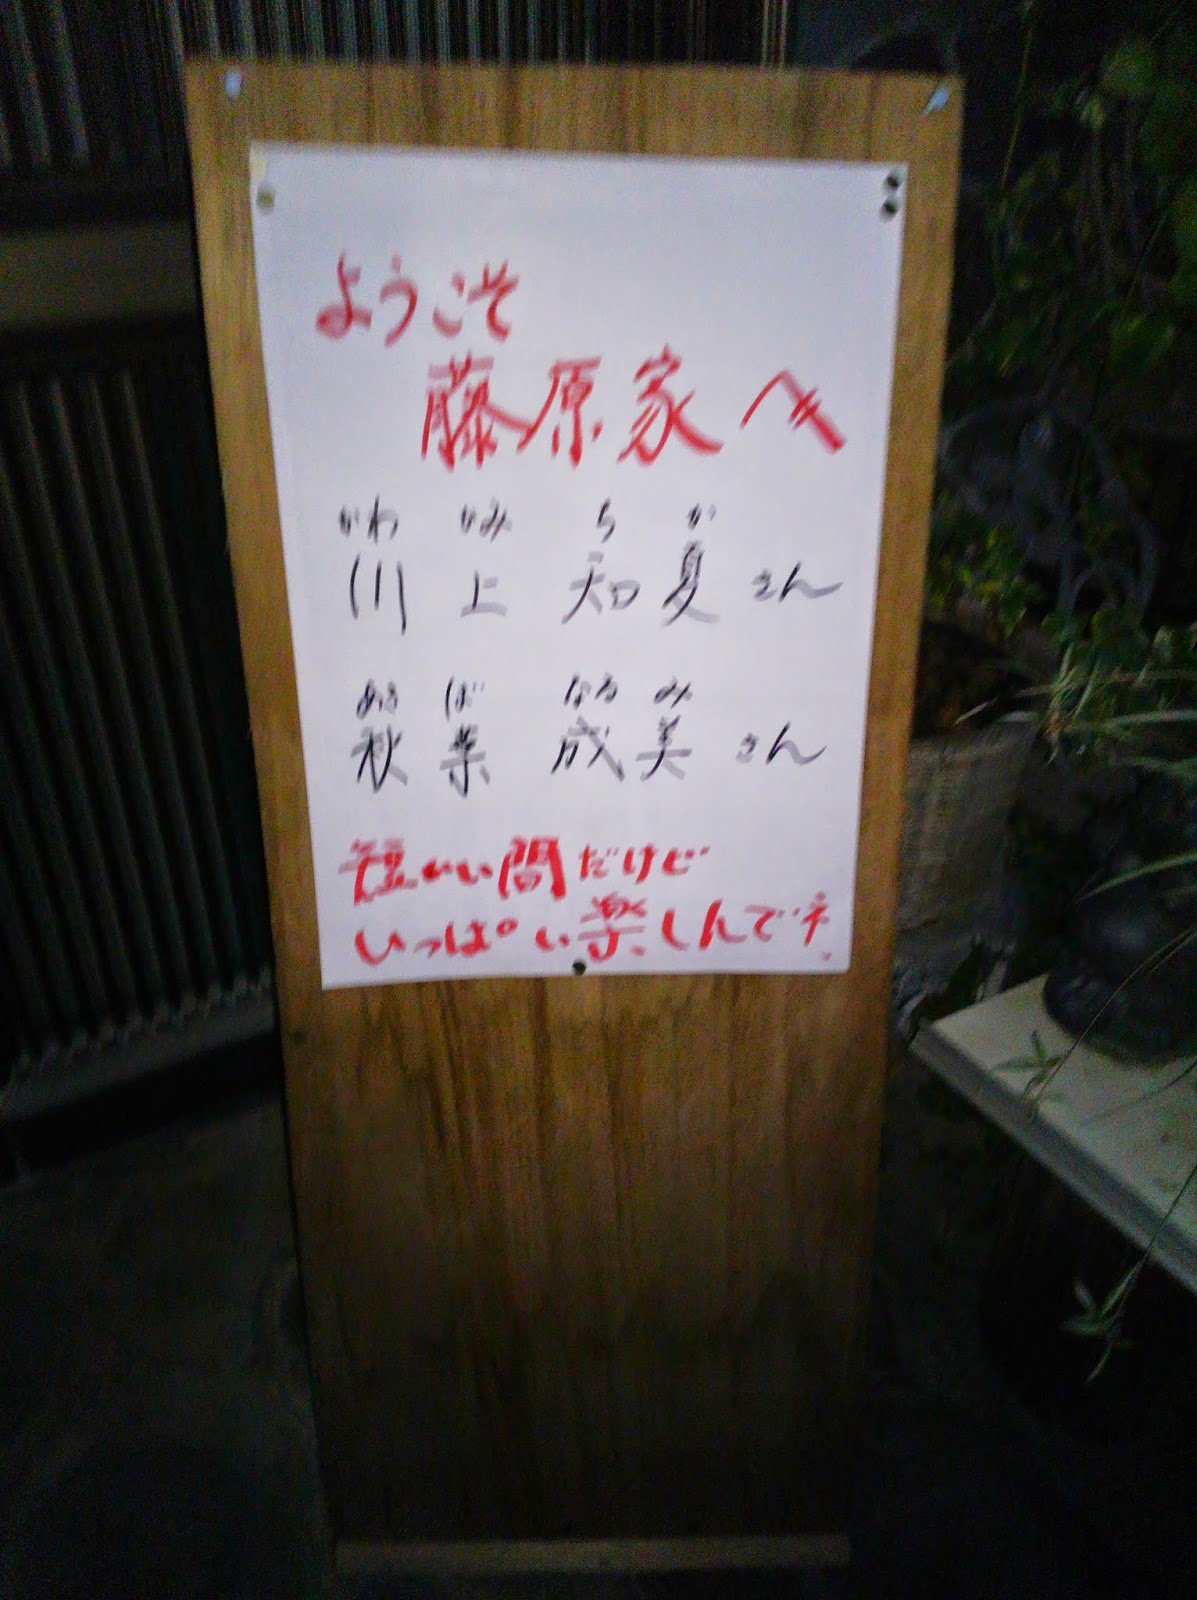 ようこそ
藤原家へ
かわ かみ ち か
川上知夏さん
あき ば なる み
秋葉成美さん
短かい間だけど
いっぱい楽しんでネ